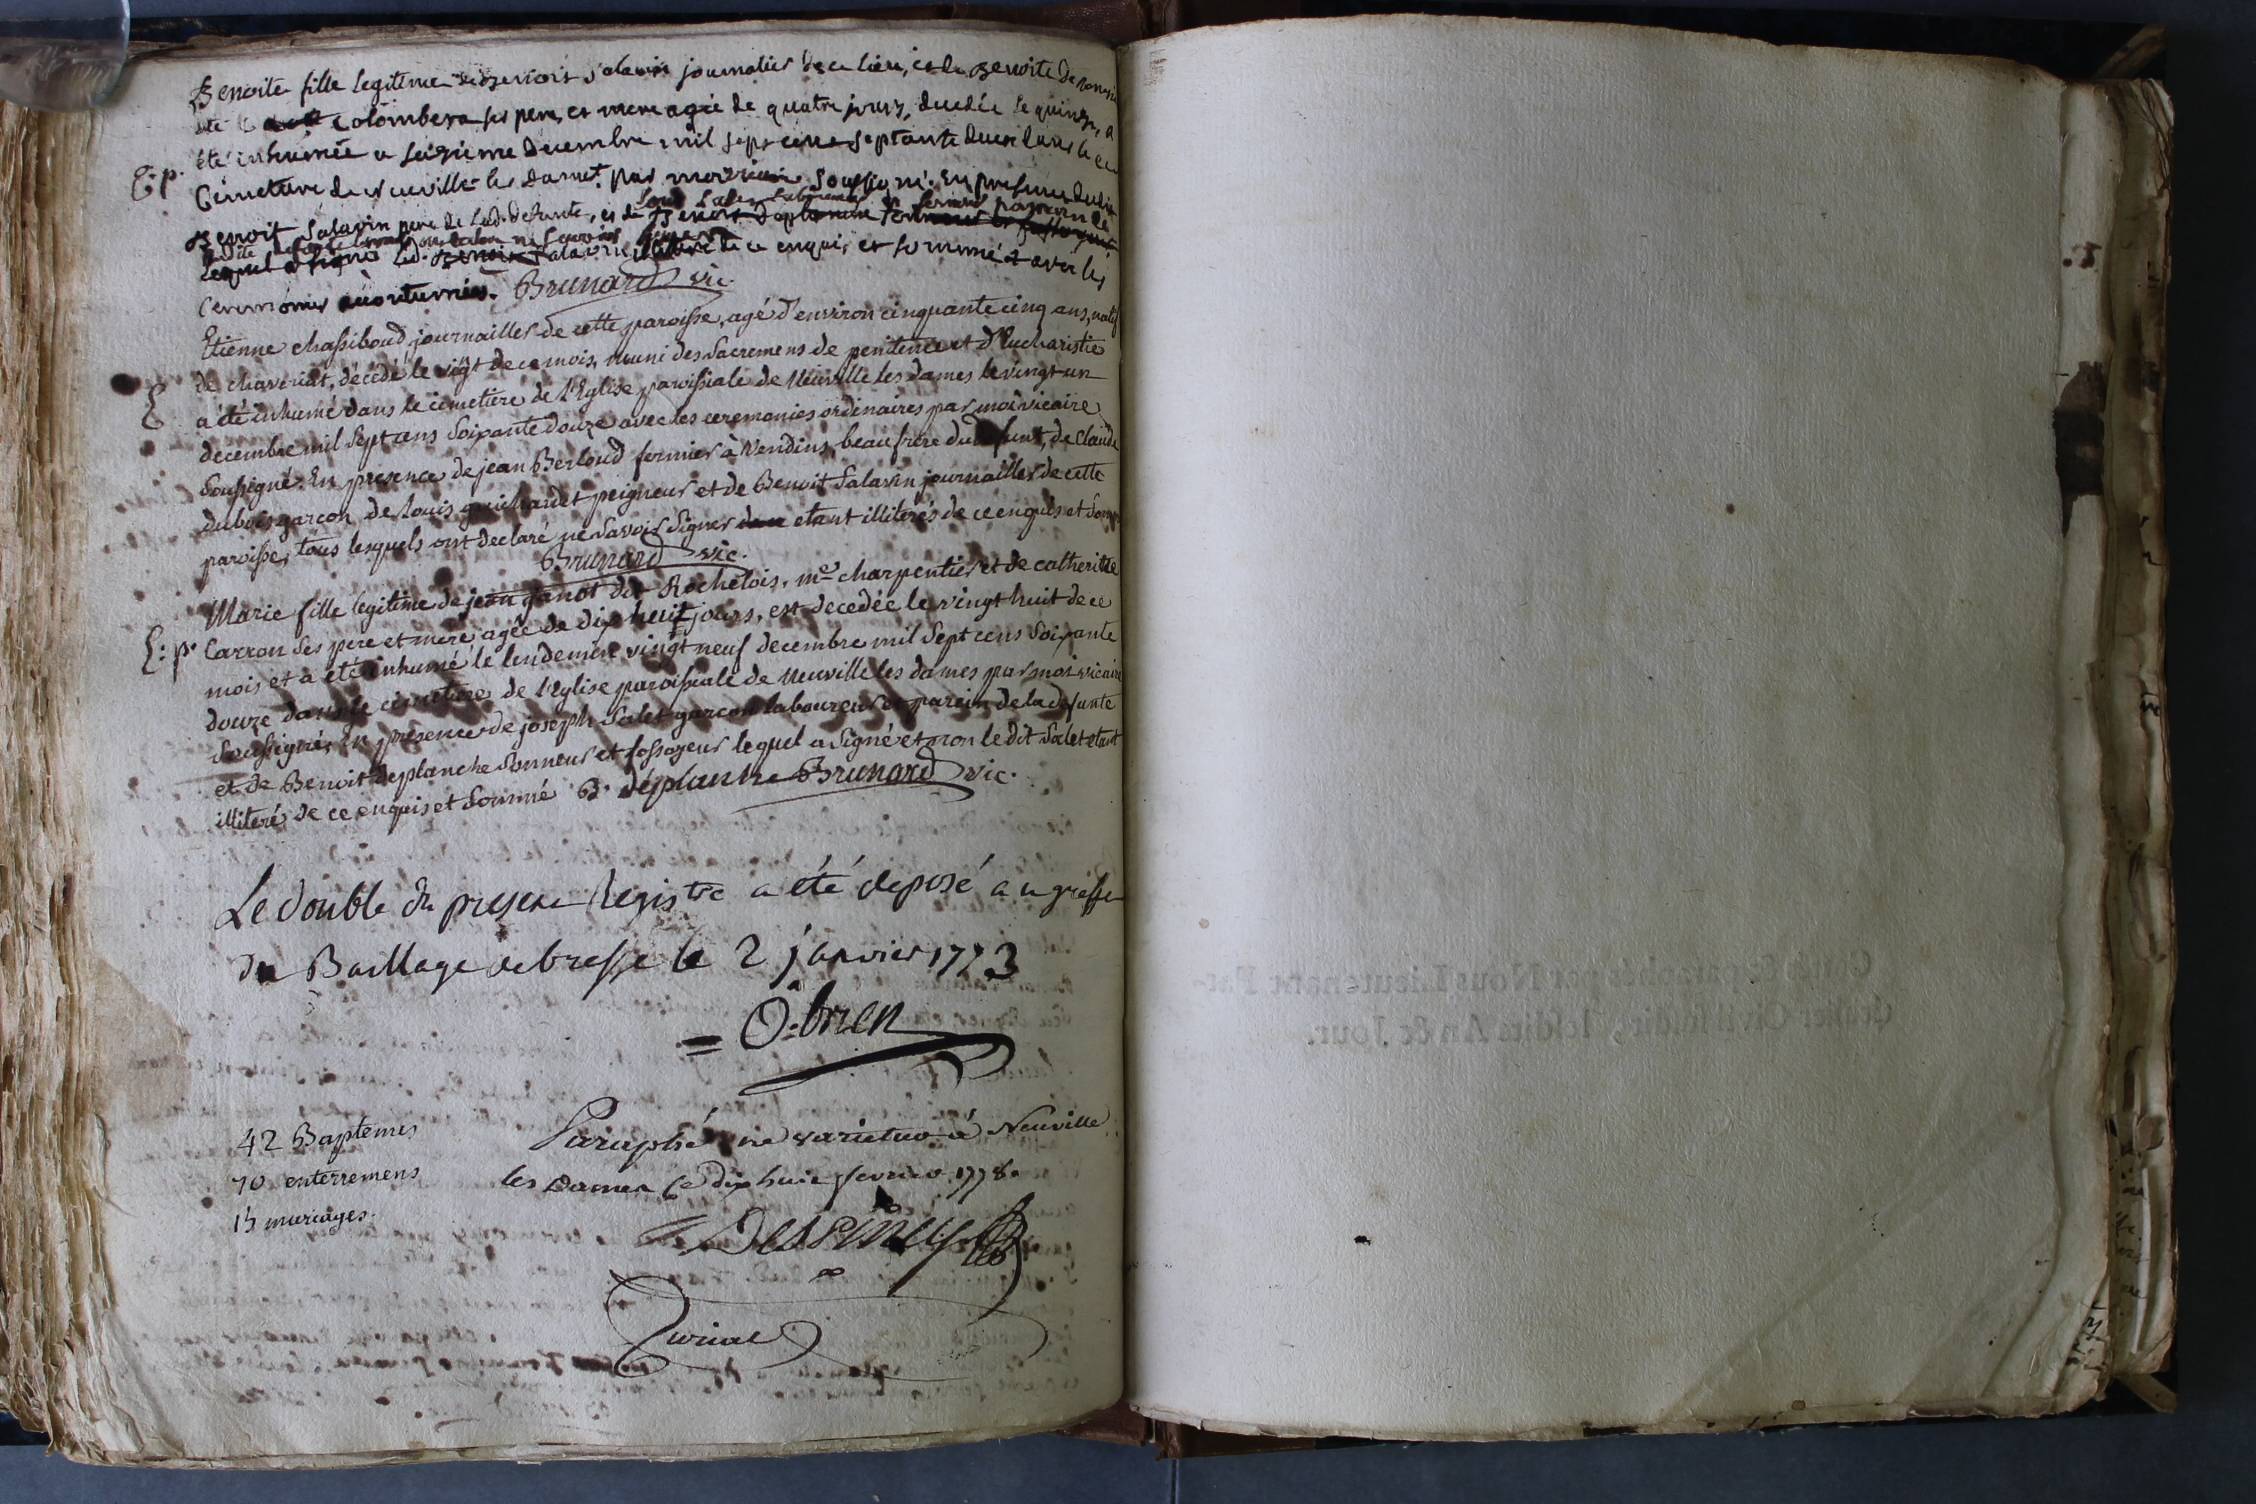 Benoite fille legitime de Benoit Salavin journalier de ce lieu, et de Benoite
dite la Colombera ses pere, et mere agée de quatre jours, decedée le quinze, a
été inhumée le seizieme decembre mil sept cens septante deux dans le
E: p.
Cemetiere de Neuville les Dames par moi vicaire soussigné. En presence dudit
Louis Salet laboureur et fermier parrain de
Benoit Salavin pere de lad. defunte, et de Benoit Deplanche
lequel a signé led. Benoit Salavin illiteré de ce enquis et sommé et avec les
Ceremonies accoutumées. Brunard vic.
Etienne chassiboud journaillier de cette paroisse, agé d'environ cinquante cinq ans, natif
de chaveriat, décédé le vigt de ce mois, muni des Sacremens de penitence et d'Eucharistie
E
a été inhumé dans le cemetiere de l'Eglise paroissiale de Neuville les dames le vingt un
decembre mil Sept cens Soixante douze avec les ceremonies ordinaires par moi vicaire
Soussigné. En presence de jean Berloud fermier à Vendins, beau frere du defunt, de Claude
dubois garcon de Louis guichardet peigneur et de Benoit Salavin journaillier de cette
paroisse, tous lesquels ont declaré ne Savoir Signer etant illiterés de ce enquis et Som
Brunard vic.
Marie fille legitime de jean ganot dit Rochelois, me charpentier et de catherine
E: p.
Carron Ses pere et mere agée de dix huit jours, est decedée le vingt huit de ce
mois et a été inhumé le lendemein vingt neuf decembre mil Sept cens Soixante
douze dans le cimetiere de l'Eglise paroissiale de Neuville les dames par moi vicaire
Soussigné, En présence de joseph Salet garcon laboureur et parein de la defunte
et de Benoit deplanche Sonneur et fossoyeur lequel a Signé et non le dit Salet etant
illiteré de ce enquis et Sommé B. déplanche Brunard vic.
Le double du present Registre a été deposé au greffe
du Baillage de bresse le 2 janvier 1773
= O-brien
42 Baptemes
70 enterremens
15 mariages.
Paraphé ne varietur à Neuville
les Dames ce dix huit fevrier 1778.